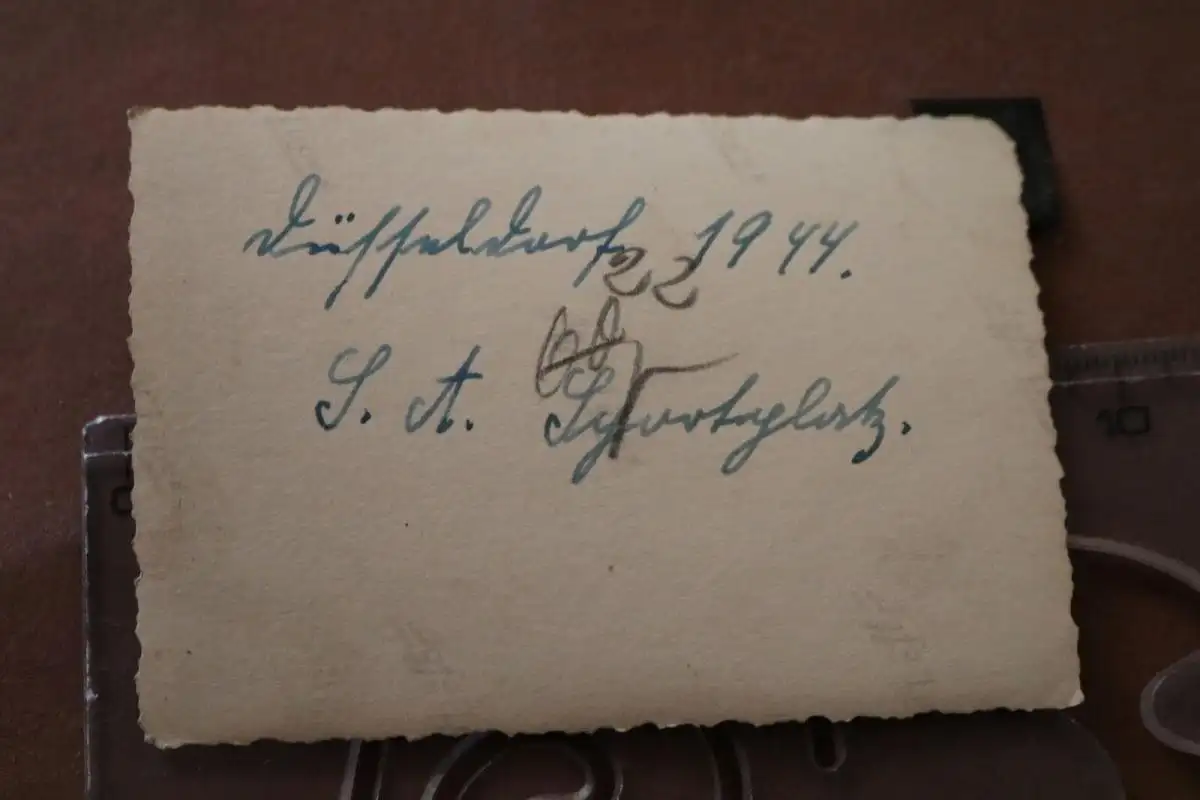 Düsseldorf 1944.
22
S. A. Sportplatz.
10